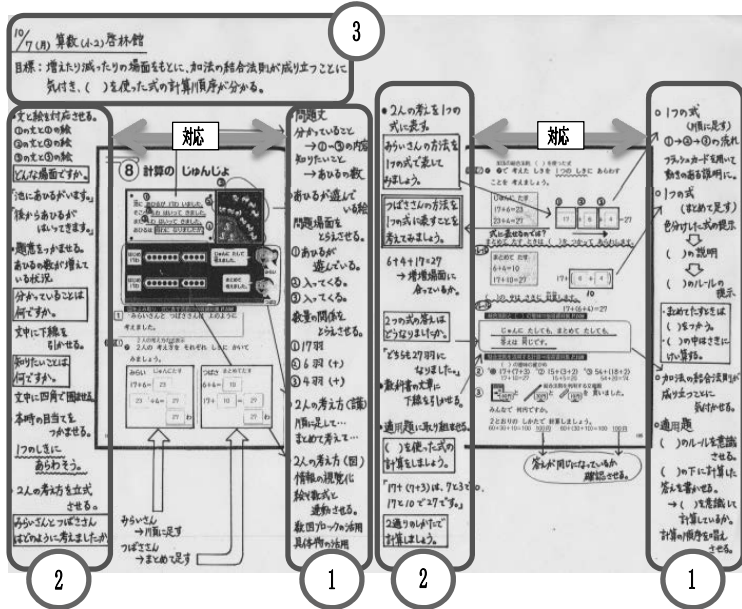 10/7(月) 算数(小2)啓林館
目標:増えたり減ったりの場面をもとに、加法の結合法則が成り立つことに
気付き、( )を使った式の計算順序が分かる。
3
・文と絵を対応させる。
①の文と①の絵
②の文と②の絵
③の文と③の絵
どんな場面ですか。
「池にあひるがいます。」
「後からあひるが
はいってきます。」
・題意をつかませる。
あひるの数が増えて
いる状況
分かっていることは
何ですか。
文中に下線を
引かせる。
知りたいことは
何ですか。
文中に四角で囲ませる。
本時の目当てを
つかませる。
1つのしきに
あらわそう。
・2人の考え方を立式
させる。
みらいさんとつばささん
はどのように考えましたか
2
対応
8 計算の じゅんじょ
みらい じゅんにたす
17+6=23
23+4=27
27わ
つばさ まとめてたす
6+4=10
17+10=27
27わ
みらいさん
→順に足す
つばささん
→まとめて足す
・問題文
分かっていること
→①-③の内容
知りたいこと
→あひるの数
・あひるが遊んで
いる絵
問題場面を
とらえさせる。
①あひるが
遊んでいる。
②入ってくる。
③入ってくる。
数量の関係を
とらえさせる。
①17羽
②6羽(+)
③4羽(+)
・2人の考え方(言葉)
順に足して…
まとめて考えて…
・2人の考え方(図)
情報の視覚化
絵や数式と
連動させる。
数図ブロックの活用
具体物の活用
1
・2人の考えを1つの
式に表す。
みらいさんの方法を
1つの式で表して
みましょう。
つばささんの方法を
1つの式に表すことを
考えてみましょう。
6+4+17=27
→増増場面に
合っているか。
2つの式の答えは
どうなりましたか。
「どちらも27羽に
なりました。」
・教科書の文章に
下線を引かせる。
・適用題に取り組ませる。
( )を使った式の
計算をしましょう。
「17+(7+3)は、7と3で10、
17と10で27です。」
2通りのしかたで
計算しましょう。
2
対応
考えた しきを 1つの しきに あらわす
ことを 考えましょう。
じゅんに たす
17+6=23
23+4=27
17 6 4 =27
まとめて たす
6+4=10
17+10=27
17+(6+4)
10
17+(6+4)=27
じゅんに たしても、まとめて たしても、
答えは 同じです。
① 17+(7+3) ② 15+(3+2) ③ 54+(18+2)
みんなで 何円ですか。
2とおりの しかたで 計算しましょう。
60+30+10=100 100円 60+(30+10)=100 100円
答えが同じになっているか
確認させる。
○1つの式
(順に足す)
①→②→③の流れ
フラッシュカードを用いて
動きのある説明に。
○1つの式
(まとめて足す)
色分けした式の提示
( )の説明
( )のルールの
提示
・まとめてたすときは
( )をつかう。
・( )の中はさきに
けい算する。
○加法の結合法則が
成り立つことに
気付かせる。
○適用題
( )のルールを意識
させる。
( )の下に計算した
答えを書かせる。
→( )を意識して
計算しているか。
計算の順序を唱え
させる。
1